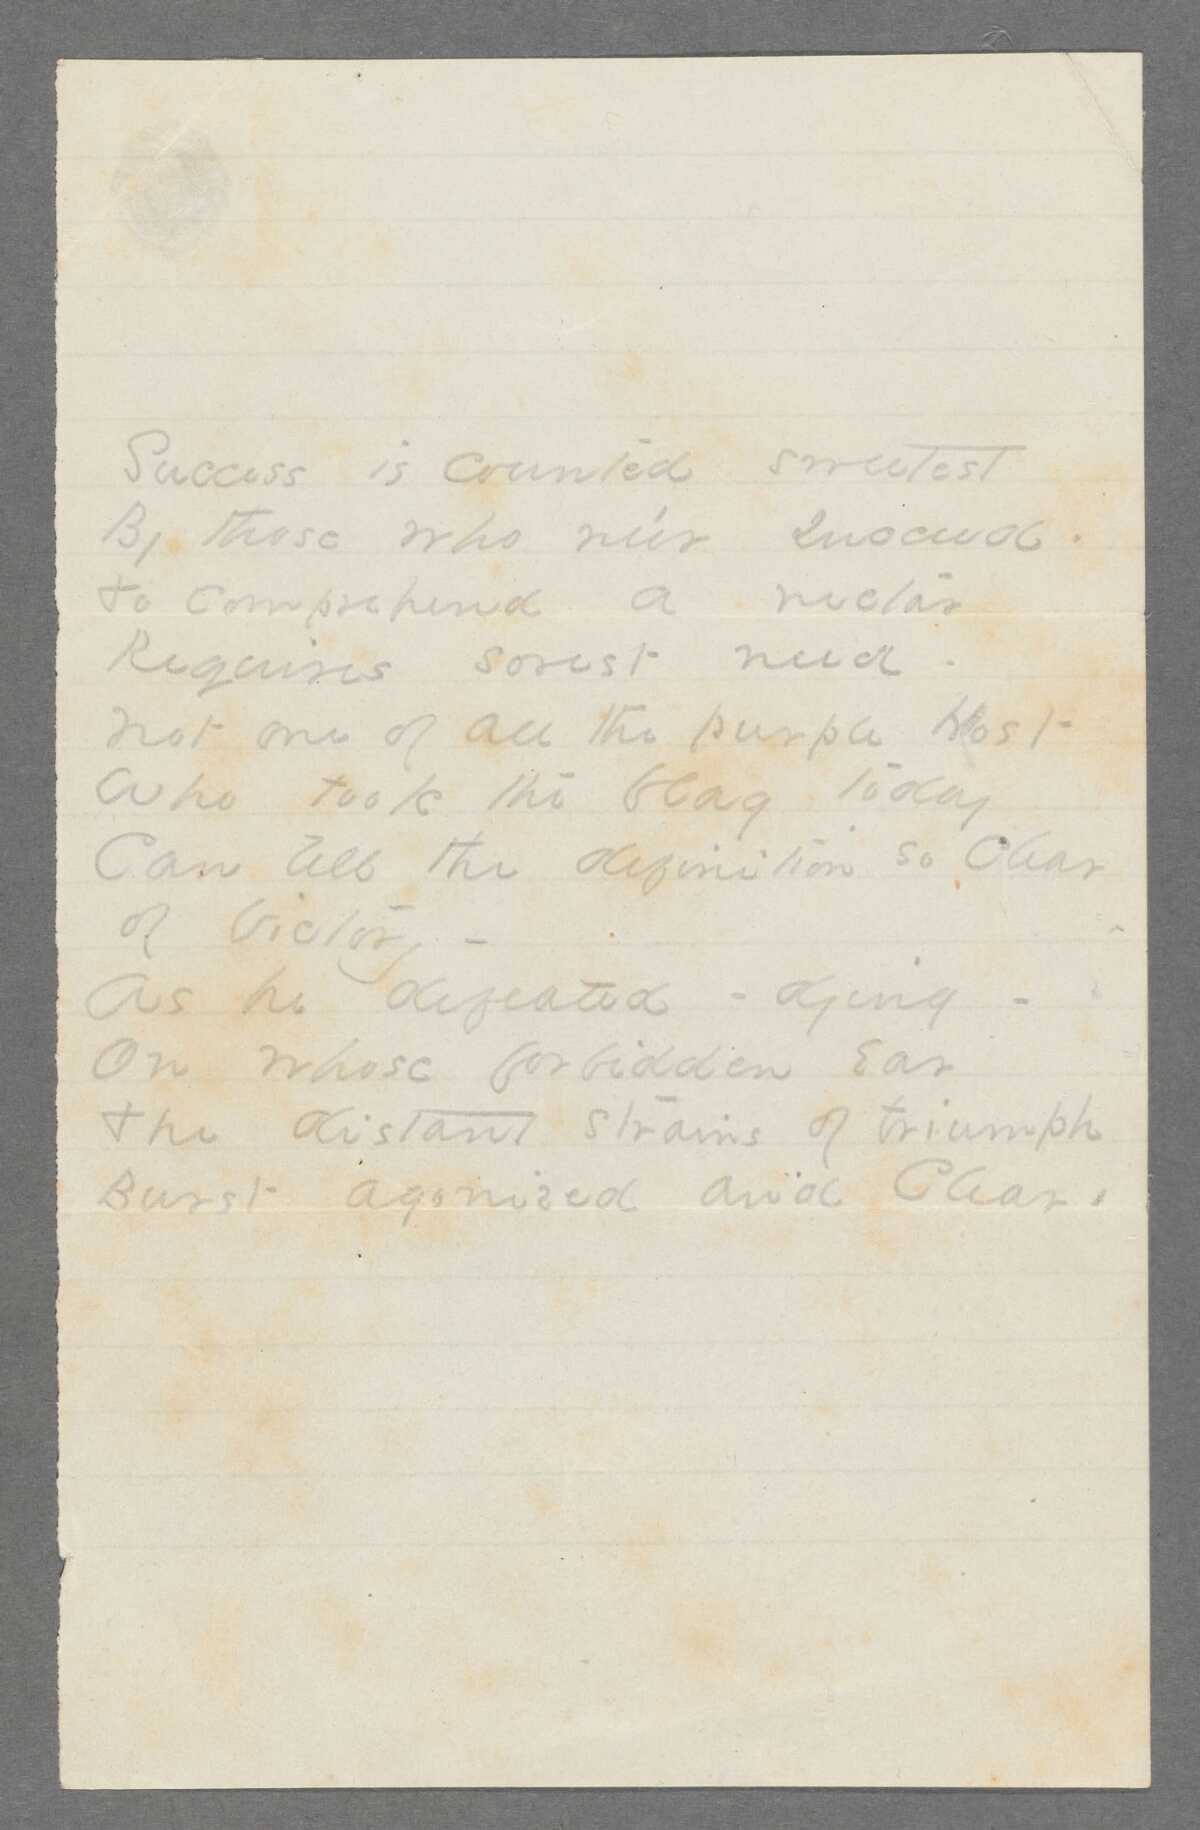 Success is counted sweetest
By those who ne'er succeed.
to comprehend a nectar
Requires sorest need.
not one of all the purple Host
Who took the flag today
Can tell the definition so Clear
of Victory, -
As he defeated - dying -
On whose forbidden Ear
the distant strains of triumph
Burst agonized and Clear.